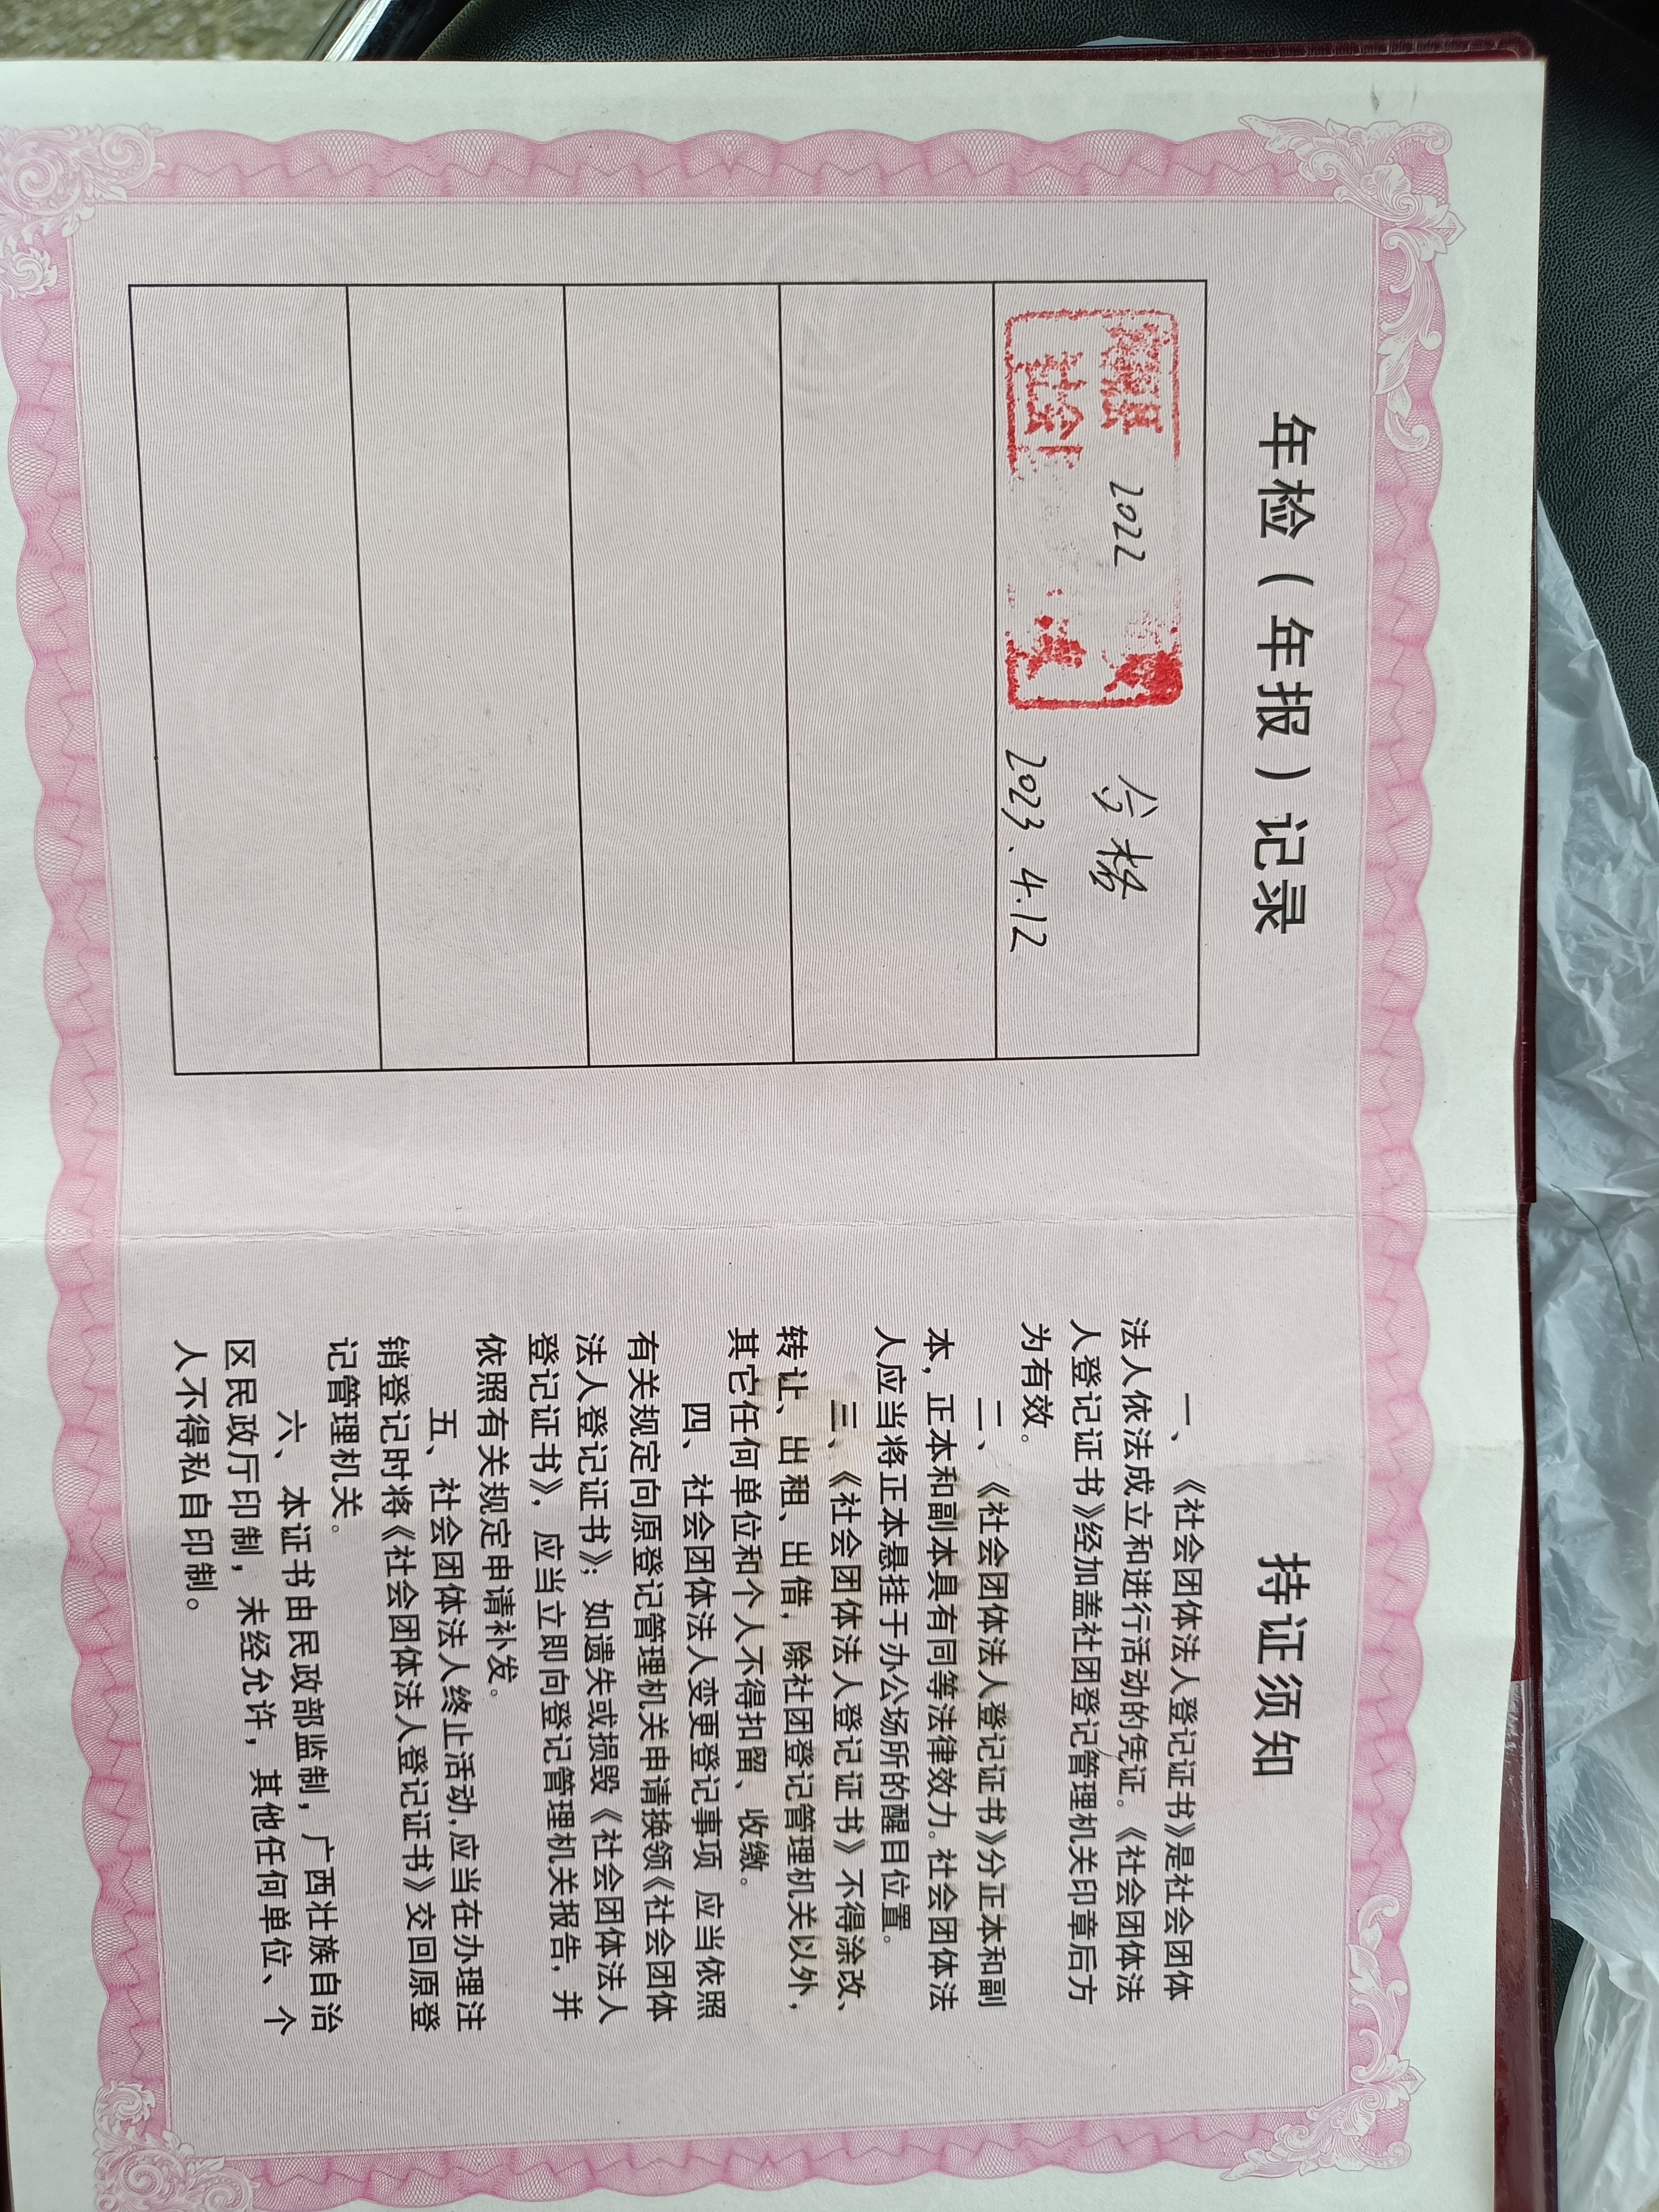 年检（年报）记录
2022
合格
社检
2023.4.12
持证须知
一、《社会团体法人登记证书》是社会团体
法人依法成立和进行活动的凭证。《社会团体法
人登记证书》经加盖社团登记管理机关印章后方
为有效。
二、《社会团体法人登记证书》分正本和副
本，正本和副本具有同等法律效力。社会团体法
人应当将正本悬挂于办公场所的醒目位置。
三、《社会团体法人登记证书》不得涂改、
转让、出租、出借，除社团登记管理机关以外，
其它任何单位和个人不得扣留、收缴。
四、社会团体法人变更登记事项 应当依照
有关规定向原登记管理机关申请换领《社会团体
法人登记证书》；如遗失或损毁《社会团体法人
登记证书》，应当立即向登记管理机关报告，并
依照有关规定申请补发。
五、社会团体法人终止活动，应当在办理注
销登记时将《社会团体法人登记证书》交回原登
记管理机关。
六、本证书由民政部监制，广西壮族自治
区民政厅印制，未经允许，其他任何单位、个
人不得私自印制。